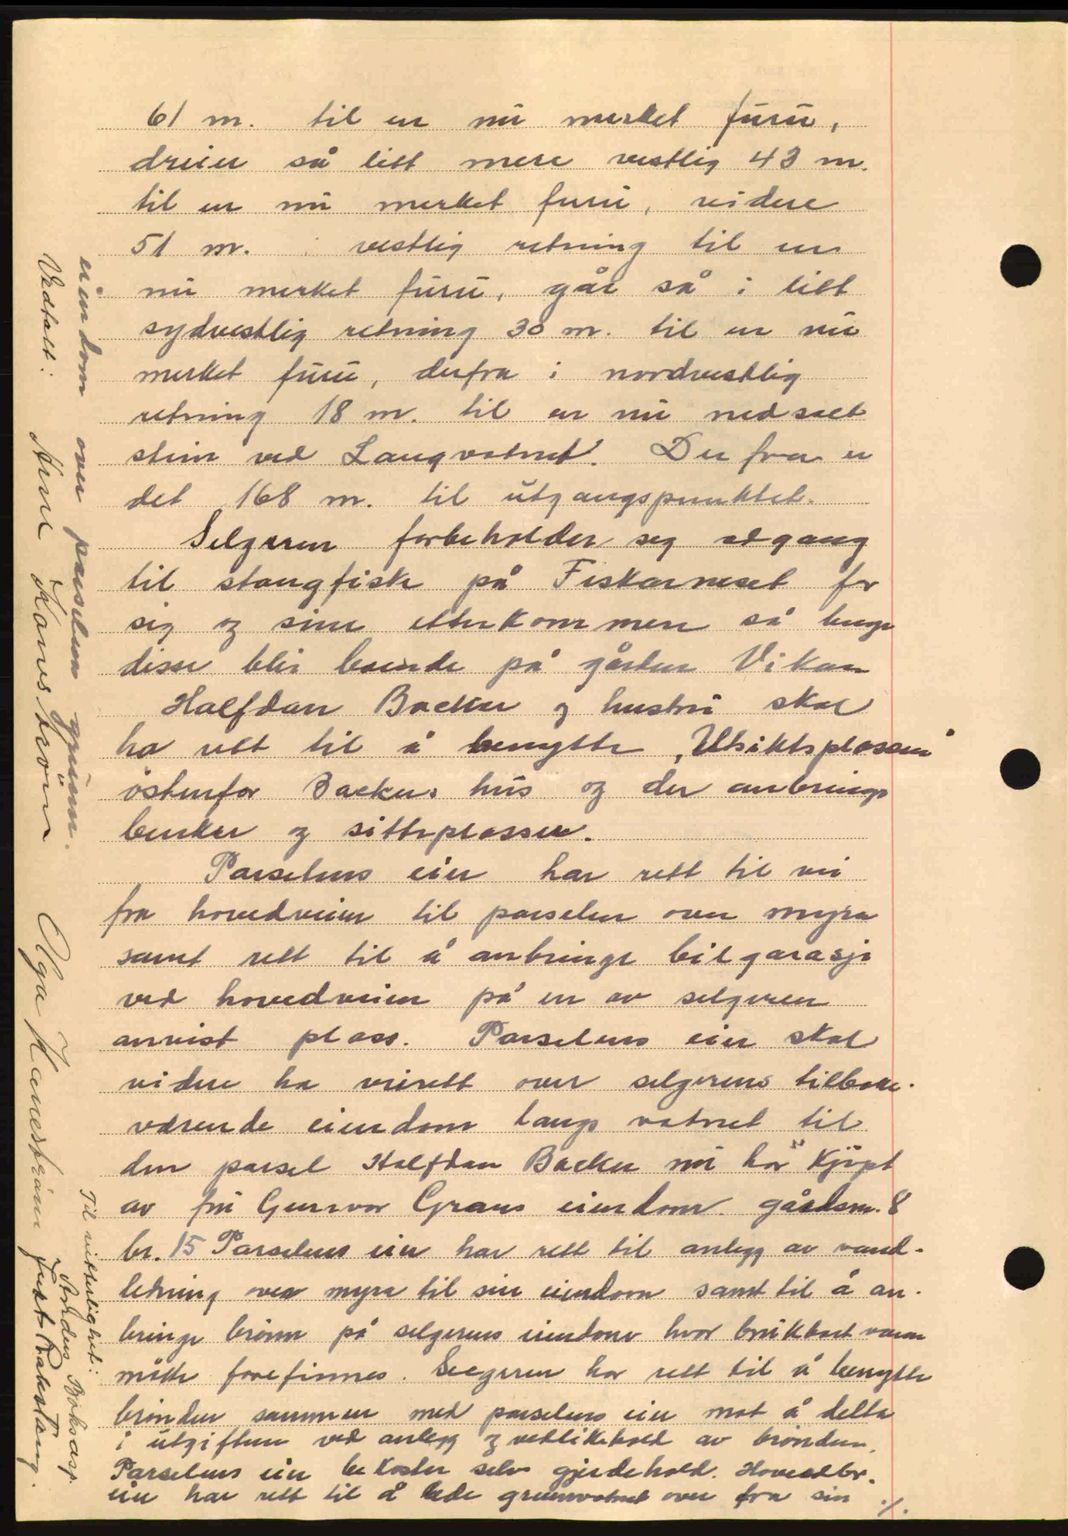 61 m. til en nu merket furu,
dreier så litt mere vestlig 43 m.
til en nu merket furu, videre
51 m. i vestlig retning til en
nu merket furu, går så i litt
sydvestlig retning 30 m. til en nu
merket furu, derfra i nordvestlig
retning 18 m. til en nu nedsatt
stein ved Langvatnet. Derfra er
det 168 m. til utgangspunktet.
Selgeren forbeholder seg adgang
til stangfisk på Fiskarneset for
sig og sine etterkommere så lenge
disse blir boende på gården Vikan
Halfdan Backer og hustru skal
ha rett til å benytte „Utsiktsplassen"
østenfor Backers hus og der anbringe
benker og sitteplasser.
Parselens eier har rett til vei
fra hovedveien til parselen over myra
samt rett til å anbringe bilgarasje
ved hovedveien på en av selgeren
anvist plass. Parselens eier skal
videre ha veirett over selgerens tilbake-
værende eiendom langs vatnet til
den parsel Halfdan Backer nu har kjøpt
av fru Gunvor Grans eiendom gårdsnr. 8
br. 15 Parselens eier har rett til anlegg av vand-
ledning over myra til sin eiendom samt til å an-
bringe brønn på selgerens eiendom hvor brukbart vann
måtte forefinnes. Selgeren har rett til å benytte
brønden sammen med parselens eier mot å delta
i utgiftene ved anlegg og vedlikehold av brønden.
Parselens eier bekoster selv gjerdehold. Hovedbr.
eier har rett til å lede grunnvatnet over fra sin ./.
eiendom over parselens grunn.
Vedtatt:
Arne Hanestrøm Olga Hanestrøm
Til vitterlighet:
Anders Boksasp.
Just Rakvång.